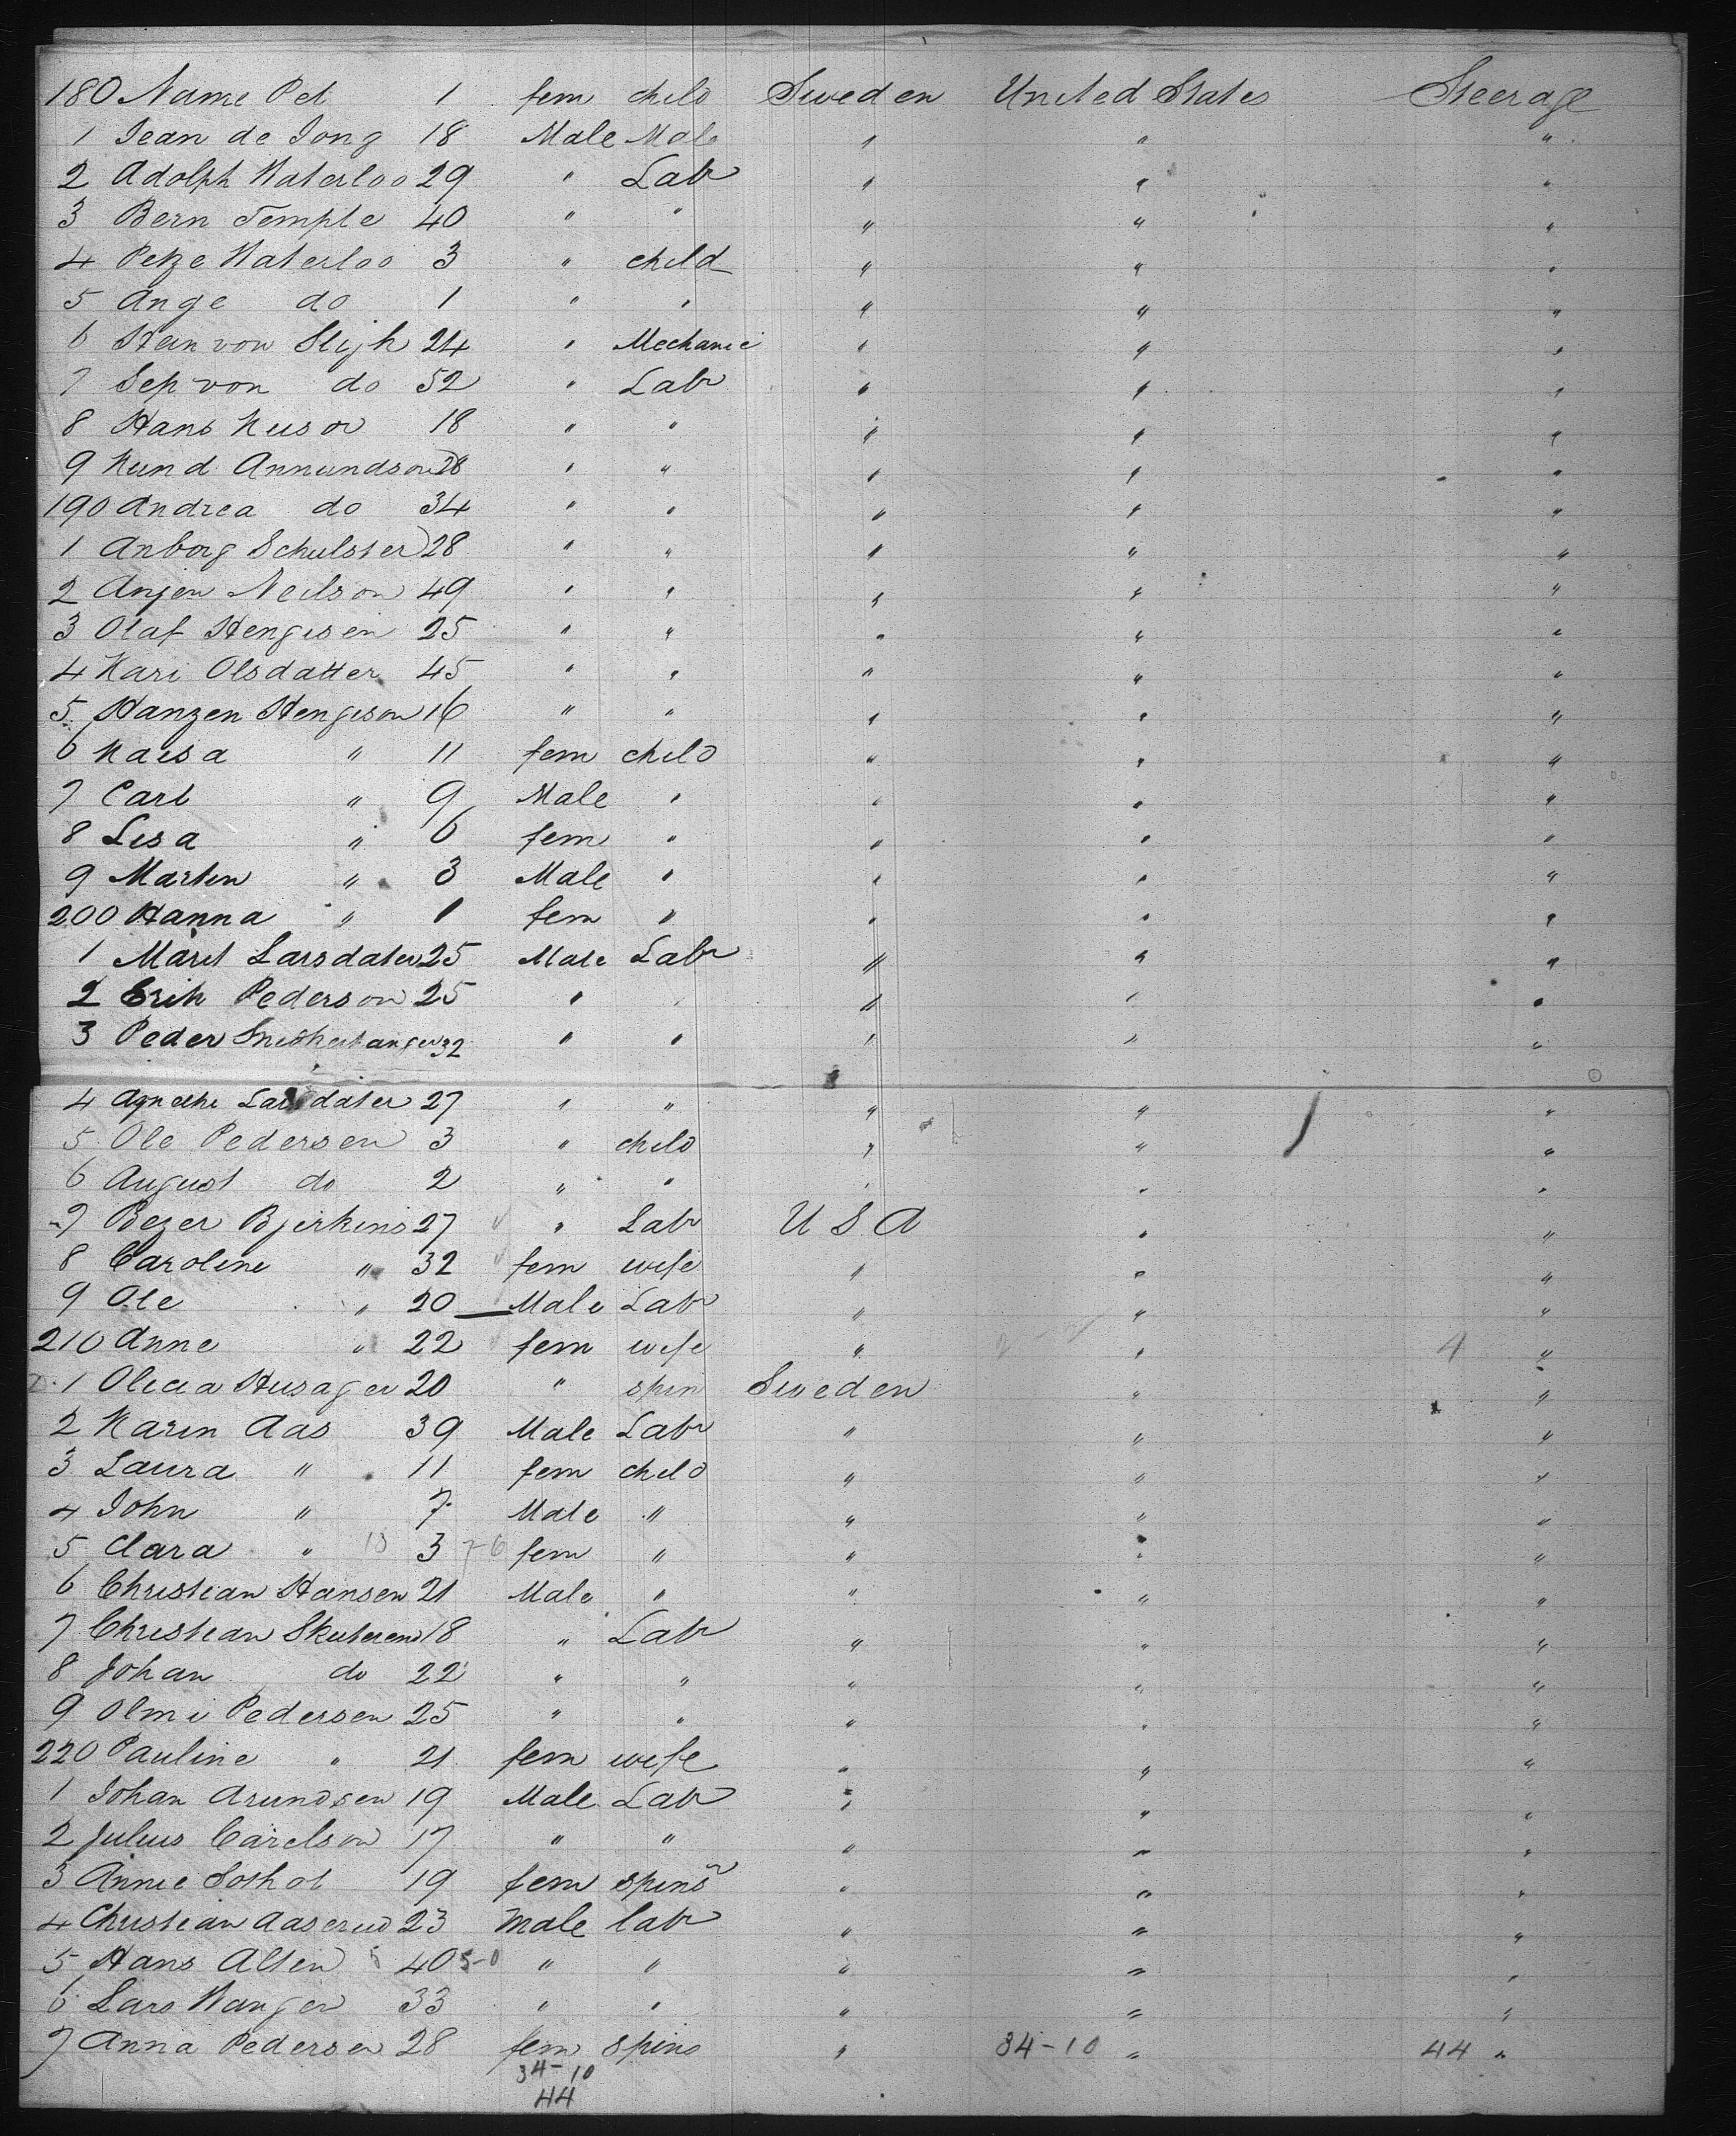 180 Name Pet 1 fem child Sweden United States Steerage
1 Jean de Jong 18 Male Male " " "
2 Adolph Waterloo 29 " Labr " " "
3 Bern Temple 40 " " " " "
4 Petze Waterloo 3 " child " " "
5 Ange do 1 " " " " "
6 Stan von Sligh 24 " Mechanic " " "
7 Sep von do 52 " Labr " " "
8 Hans Kusor 18 " " " " "
9 Kund Annundson 28 " " " " "
190 Andrea do 34 " " " " "
1 Anborg Schulster 28 " " " " "
2 Anjen Neilson 49 " " " " "
3 Olaf Hengisen 25 " " " " "
4 Kari Olsdatter 45 " " " " "
5 Hanzen Hengison 16 " " " " "
6 Kaisa " 11 fem child " " "
7 Carl " 9 Male " " " "
8 Lisa " 6 fem " " " "
9 Martin " 3 Male " " " "
200 Hanna " 1 fem " " " "
1 Marit Larsdater 25 Male Labr " " "
2 Erik Pederson 25 " " " " "
3 Peder 32 " " " " "
4 Larsdater 27 " " " " "
5 Ole Pedersen 3 " child " " "
6 August do 2 " " " " "
7 Bezer Bjerkins 27 " Labr U S A " "
8 Caroline " 32 fem wife " " "
9 Ole " 20 Male Labr " " "
210 Anne " 22 fem wife " " 4 "
1 Olicia Husager 20 " spin Sweden " "
2 Karin Aas 39 Male Labr " " "
3 Laura " 11 fem child " " "
4 John " 7 Male " " " "
5 Clara " 3 fem " " " "
6 Christian Hansen 21 Male " " " "
7 Christian Skuterend 18 " Labr " " "
8 Johan do 22 " " " " "
9 Olmi Pedersen 25 " " " " "
220 Pauline " 21 fem wife " " "
1 Johan Arundsen 19 Male Labr " " "
2 Julius Carelson 17 " " " " "
3 Annie Sothot 19 fem spins " " "
4 Christian Aaserud 23 male labr " " "
5 Hans Alten 40 5-0 " " " " "
6 Lars Wanger 33 " " " " "
7 Anna Pedersen 28 fem spins " 34-10 " 44 "
34-10
44